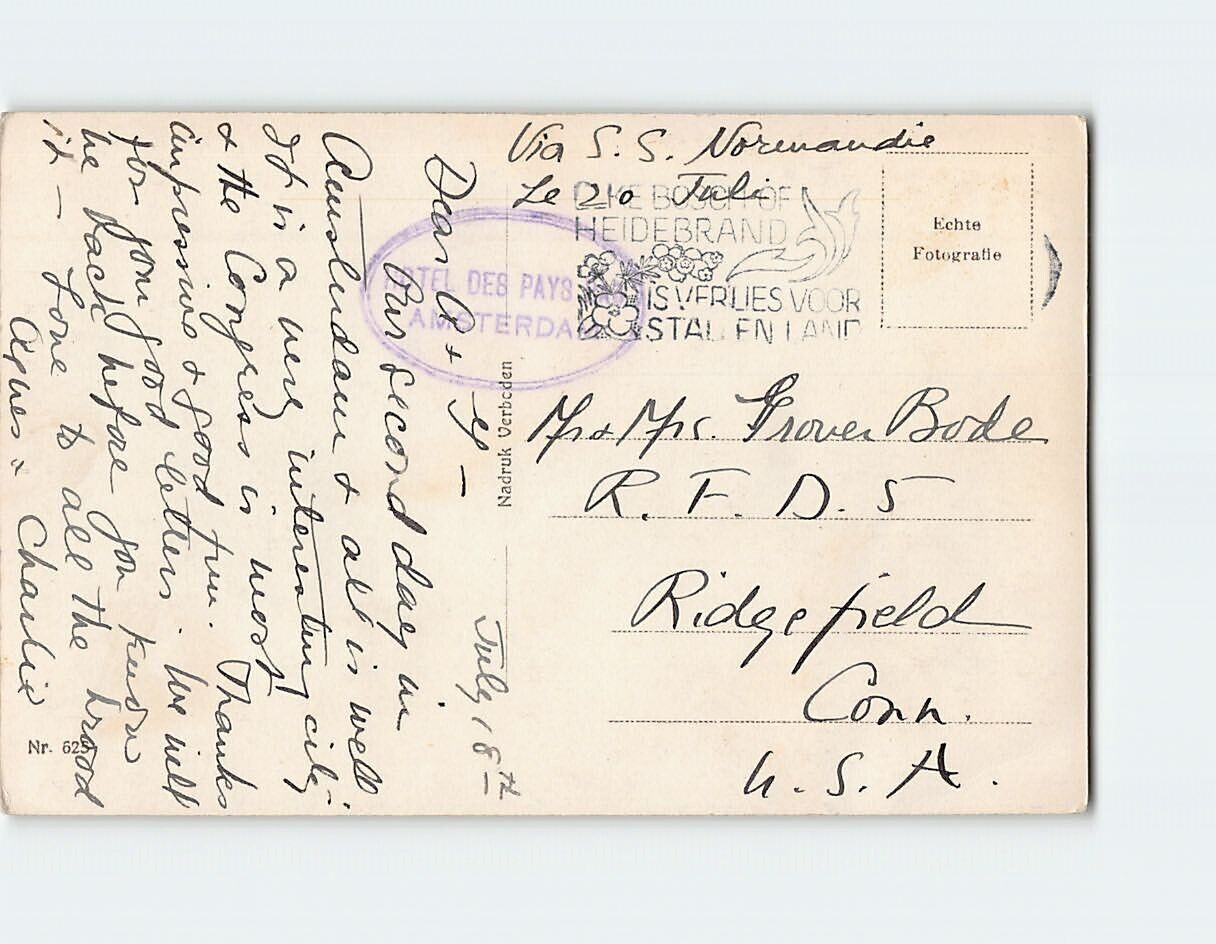 Via S. S. Normandie
Le 20 Juli
ELKE BOSCH OF
HEIDEBRAND
IS VERLIES VOOR
STAD EN LAND
Echte
Fotografie
HOTEL DES PAYS
AMSTERDA
Nadruk Verboden
Mr & Mrs. Grover Bode
R. F. D. 5
Ridgefield
Conn.
U. S. A.
July 18th
Dear &
Our second day in
Amsterdam & all is well.
It is a very interesting city
& the Congress is most
impressive & good fun. Thanks
for your good letters. We will
be back before you know
it — Love to all the brood
Agnes & Charlie
Nr. 625